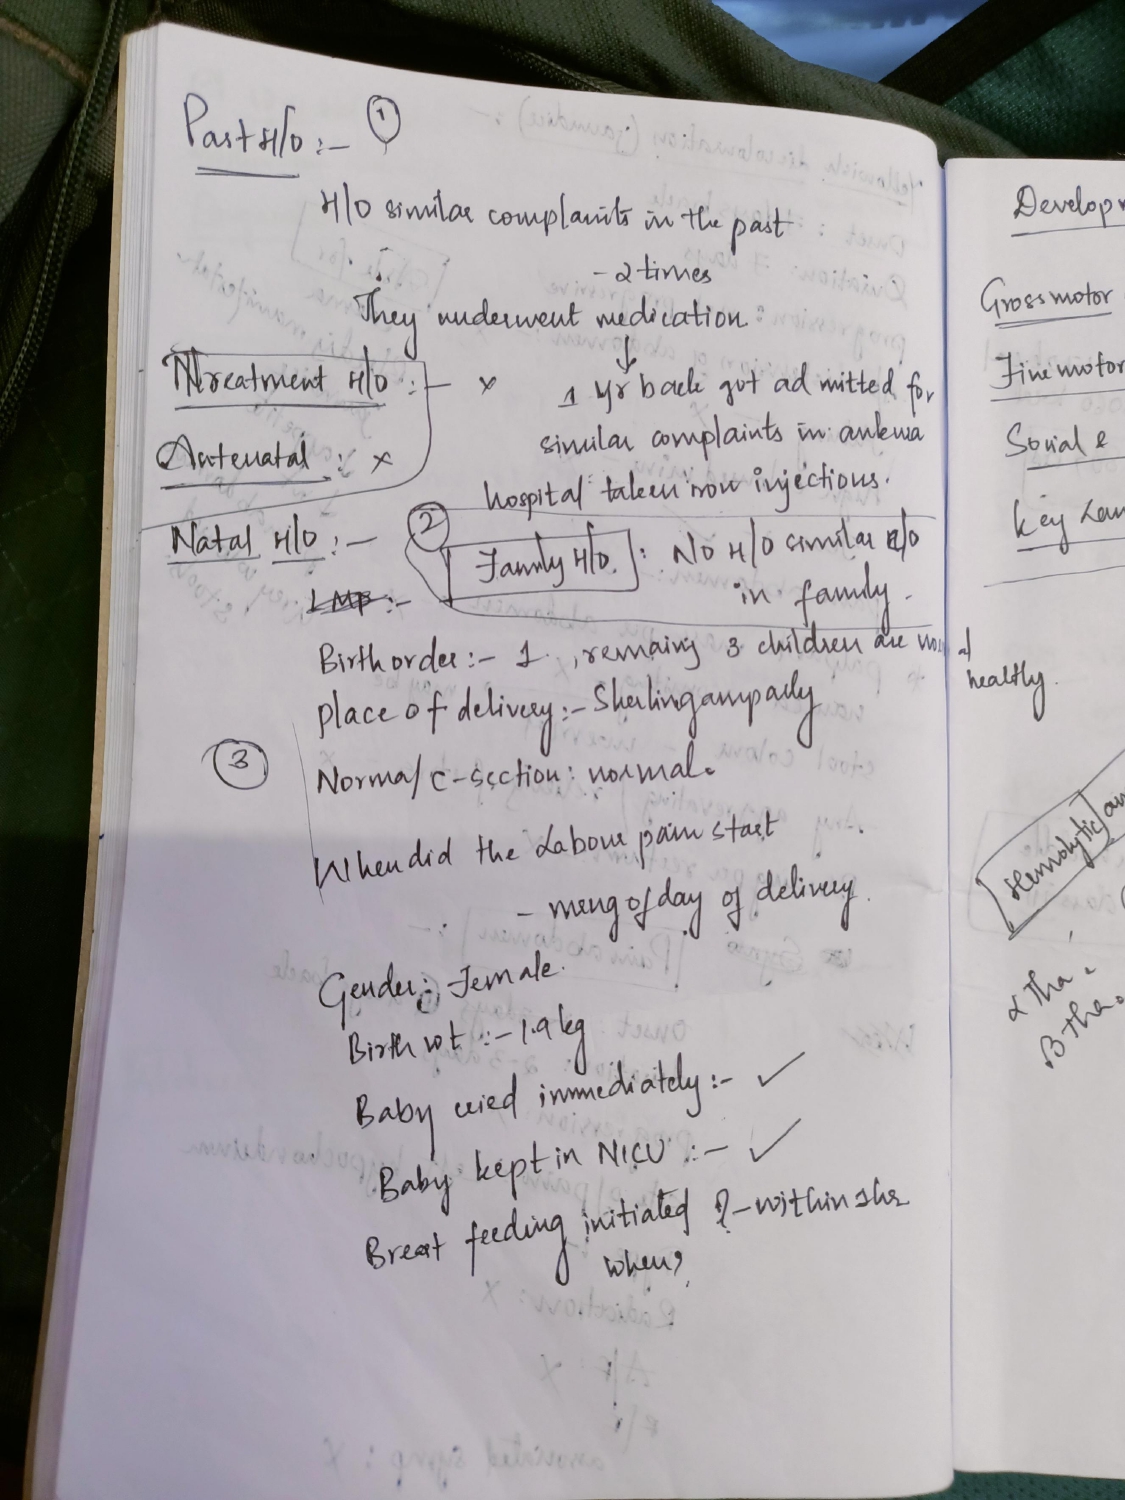 Past H/O :- ①
H/O similar complaints in the past
- 2 times
They underwent medication
↓
Treatment H/O :- x
1 yr back got admitted for
similar complaints in ankura
hospital taken iron injections.
Antenatal : x
Natal H/O :-
② Family H/O : NO H/O similar
in family.
LMP :-
Birth order :- 1 , remaing 3 children are normal
healthy.
place of delivery :-
③
Normal/C-section : normal.
When did the Labour pain start
- mrng of day of delivery.
Gender :- Female.
Birth wt :- 1.9 kg
Baby cried immediately :- ✓
Baby kept in NICU :- ✓
Breast feeding initiated ? - within 1hr
when?
Develop
Gross motor
Fine motor
Social &
key
Hemolytic
α Tha.
β tha.